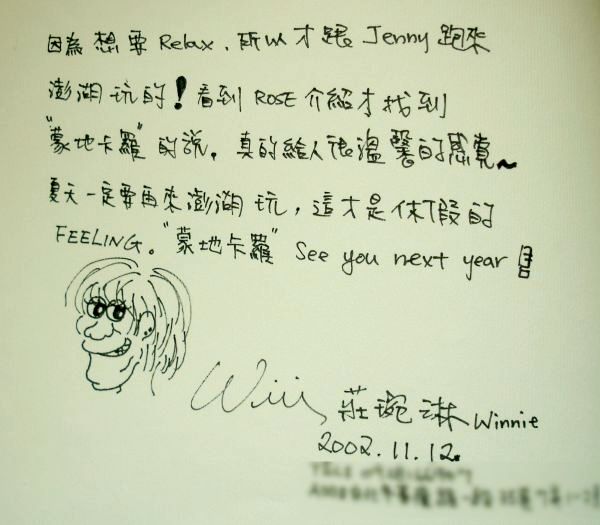 因為想要Relax，所以才跟Jenny跑來
澎湖玩的！看到ROSE介紹才找到
"蒙地卡羅"的說，真的給人很溫馨的感覺~
夏天一定要再來澎湖玩，這才是休假的
FEELING。"蒙地卡羅" See you next year!
莊琬淋 Winnie
2002.11.12.